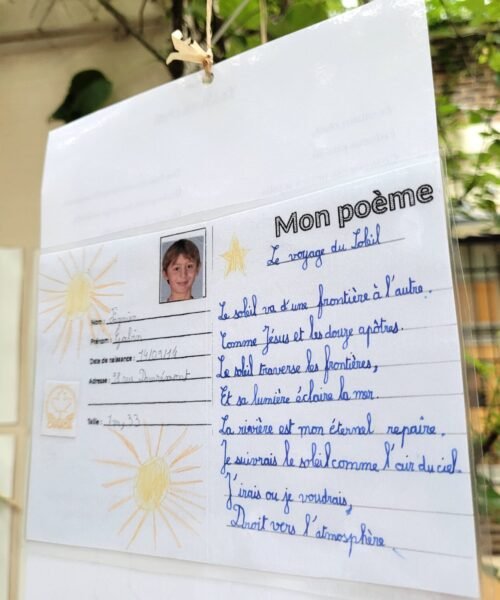 Mon poème
Le voyage du Soleil
Nom :
Prénom :
Date de naissance : 14/03/14
Adresse : rue
Taille : 1m,33
Le soleil va d'une frontière à l'autre.
Comme Jésus et les douze apôtres.
Le soleil traverse les frontières,
Et sa lumière éclaire la mer.
La rivière est mon éternel repaire.
Je suivrais le soleil comme l'air du ciel.
J'irais ou je voudrais,
Droit vers l'atmosphère.